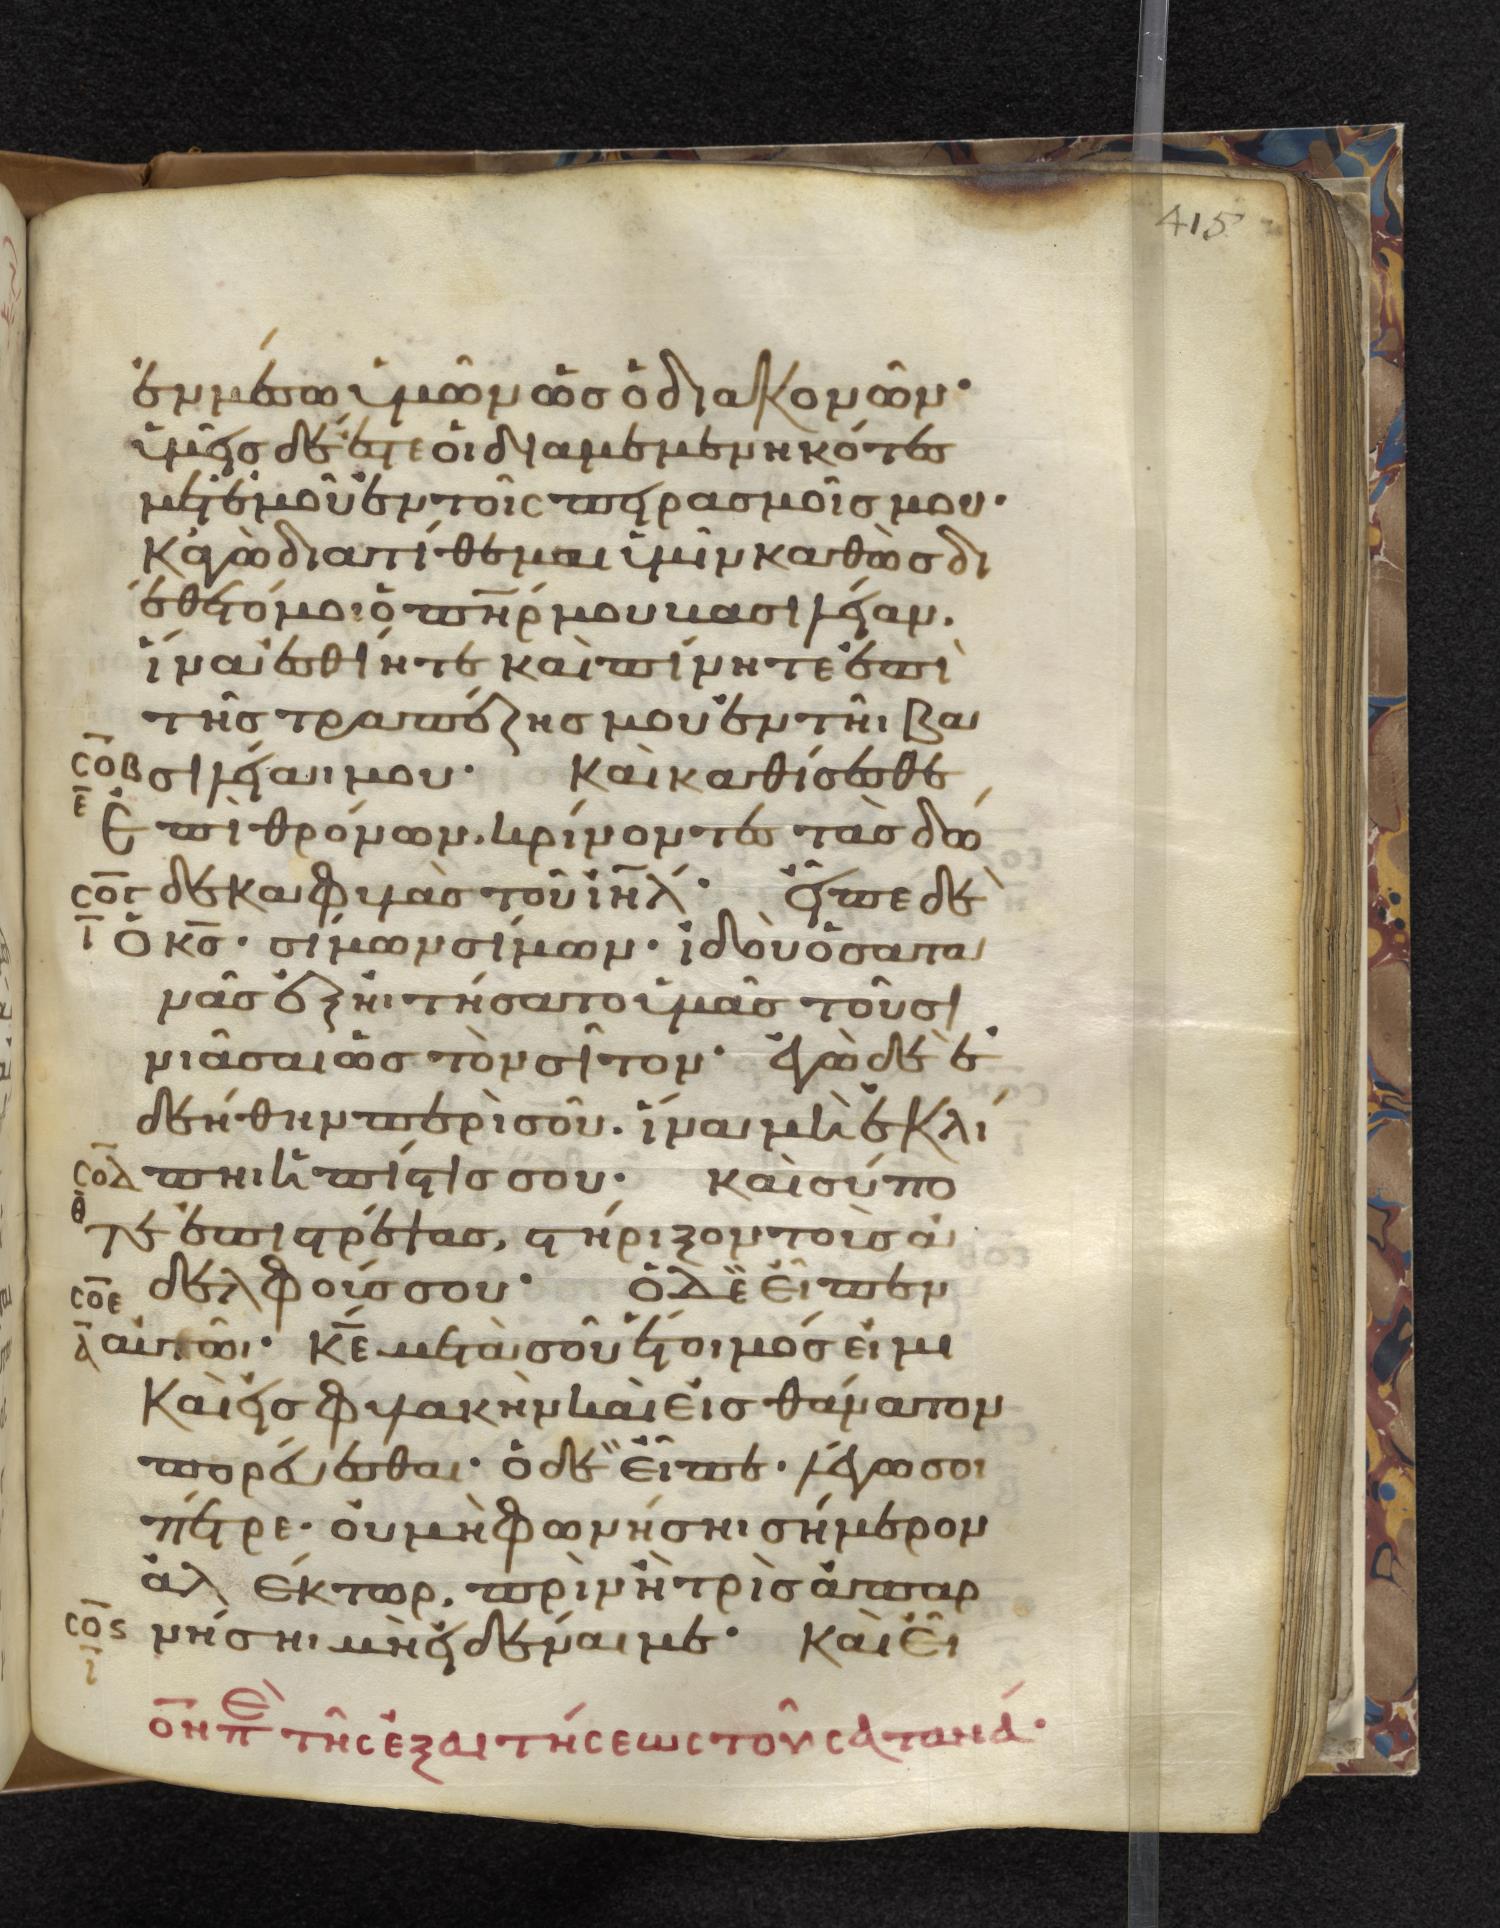 415
ἐν μέσω ὑμῶν ὡς ὁ διακονῶν·
ὑμεῖς δέ ἐστε οἱ διαμεμενηκότες
μετ' ἐμοῦ ἐν τοῖς πειρασμοῖς μου·
κἀγὼ διατίθεμαι ὑμῖν καθὼς δι
έθετό μοι ὁ π̅η̅ρ μου βασιλείαν.
ἵνα ἐσθίητε καὶ πίνητε ἐπὶ
τῆς τραπέζης μου ἐν τῆι βα
σοβ σιλείαι μου· Καὶ καθίσεσθε
ε Ἐπὶ θρόνων. κρίνοντες τὰς δώ
σογ δεκα φυλὰς τοῦ ἰη̅λ· εἶπε δὲ
ι Ὁ κ̅ς· σίμων σίμων· ἰδοὺ ὁ σατα
νᾶς ἐξηιτήσατο ὑμᾶς τοῦ σι
νιᾶσαι ὡς τὸν σῖτον· ἐγὼ δὲ ἐ
δεήθην περὶ σοῦ. ἵνα μὴ ἐκλί
σοδ πηι ἡ πίστις σου· καὶ σύ πο
θ τε ἐπιστρέψας, στήριξον τοὺς ἀ
δελφούς σου· ὁ δὲ εἶπεν
σοε
α αὐτῶι· κ̅ε μετὰ σοῦ ἕτοιμός εἰμι
Καὶ εἰς φυλακὴν καὶ εἰς θάνατον
πορεύεσθαι· ὁ δὲ εἶπε· λέγω σοι
πέτρε· οὐ μὴ φωνήσηι σήμερον
ἀλέκτωρ. πρὶν ἢ τρὶς ἀπαρ
σος νήσηι μὴ εἰδέναι με· Καὶ εἶ
ι
ο̅η πε τῆς ἐξαιτήσεως τοῦ σατανᾶ·